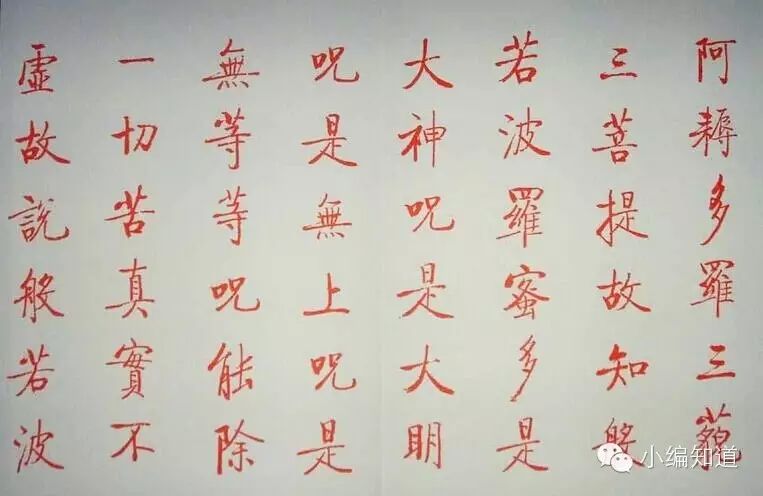 阿耨多羅三藐
三菩提故知般
若波羅蜜多是
大神呪是大明
呪是無上呪是
無等等呪能除
一切苦真實不
虛故說般若波
小编知道